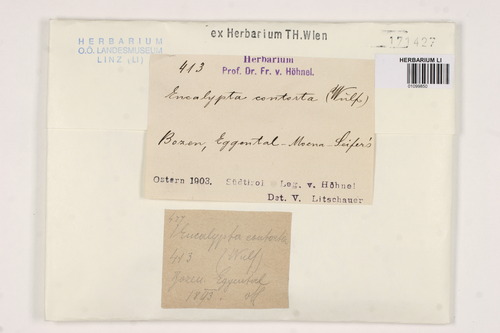 HERBARIUM
O.Ö. LANDESMUSEUM
LINZ (LI)
ex Herbarium TH.Wien
171427
HERBARIUM LI
01099850
Herbarium
413
Prof. Dr. Fr. v. Höhnel.
Encalypta contorta (Wulf)
Bozen, Eggental - Moena - Seifer's
Ostern 1903. Südtirol Leg. v. Höhnel
Det. V. Litschauer
Encalypta contorta
413 (Wulf)
Bozen Eggental